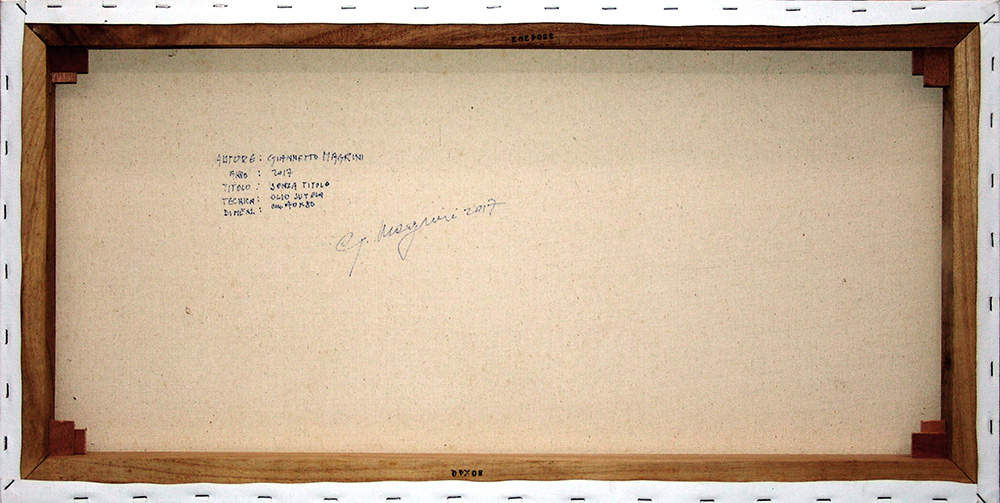 3304202
AUTORE: GIANNETTO MAGRINI
ANNO : 2017
TITOLO: SENZA TITOLO
TECNICA: OLIO SU TELA
DIMENS. : CM 40X80
G. Magrini 2017
80X40